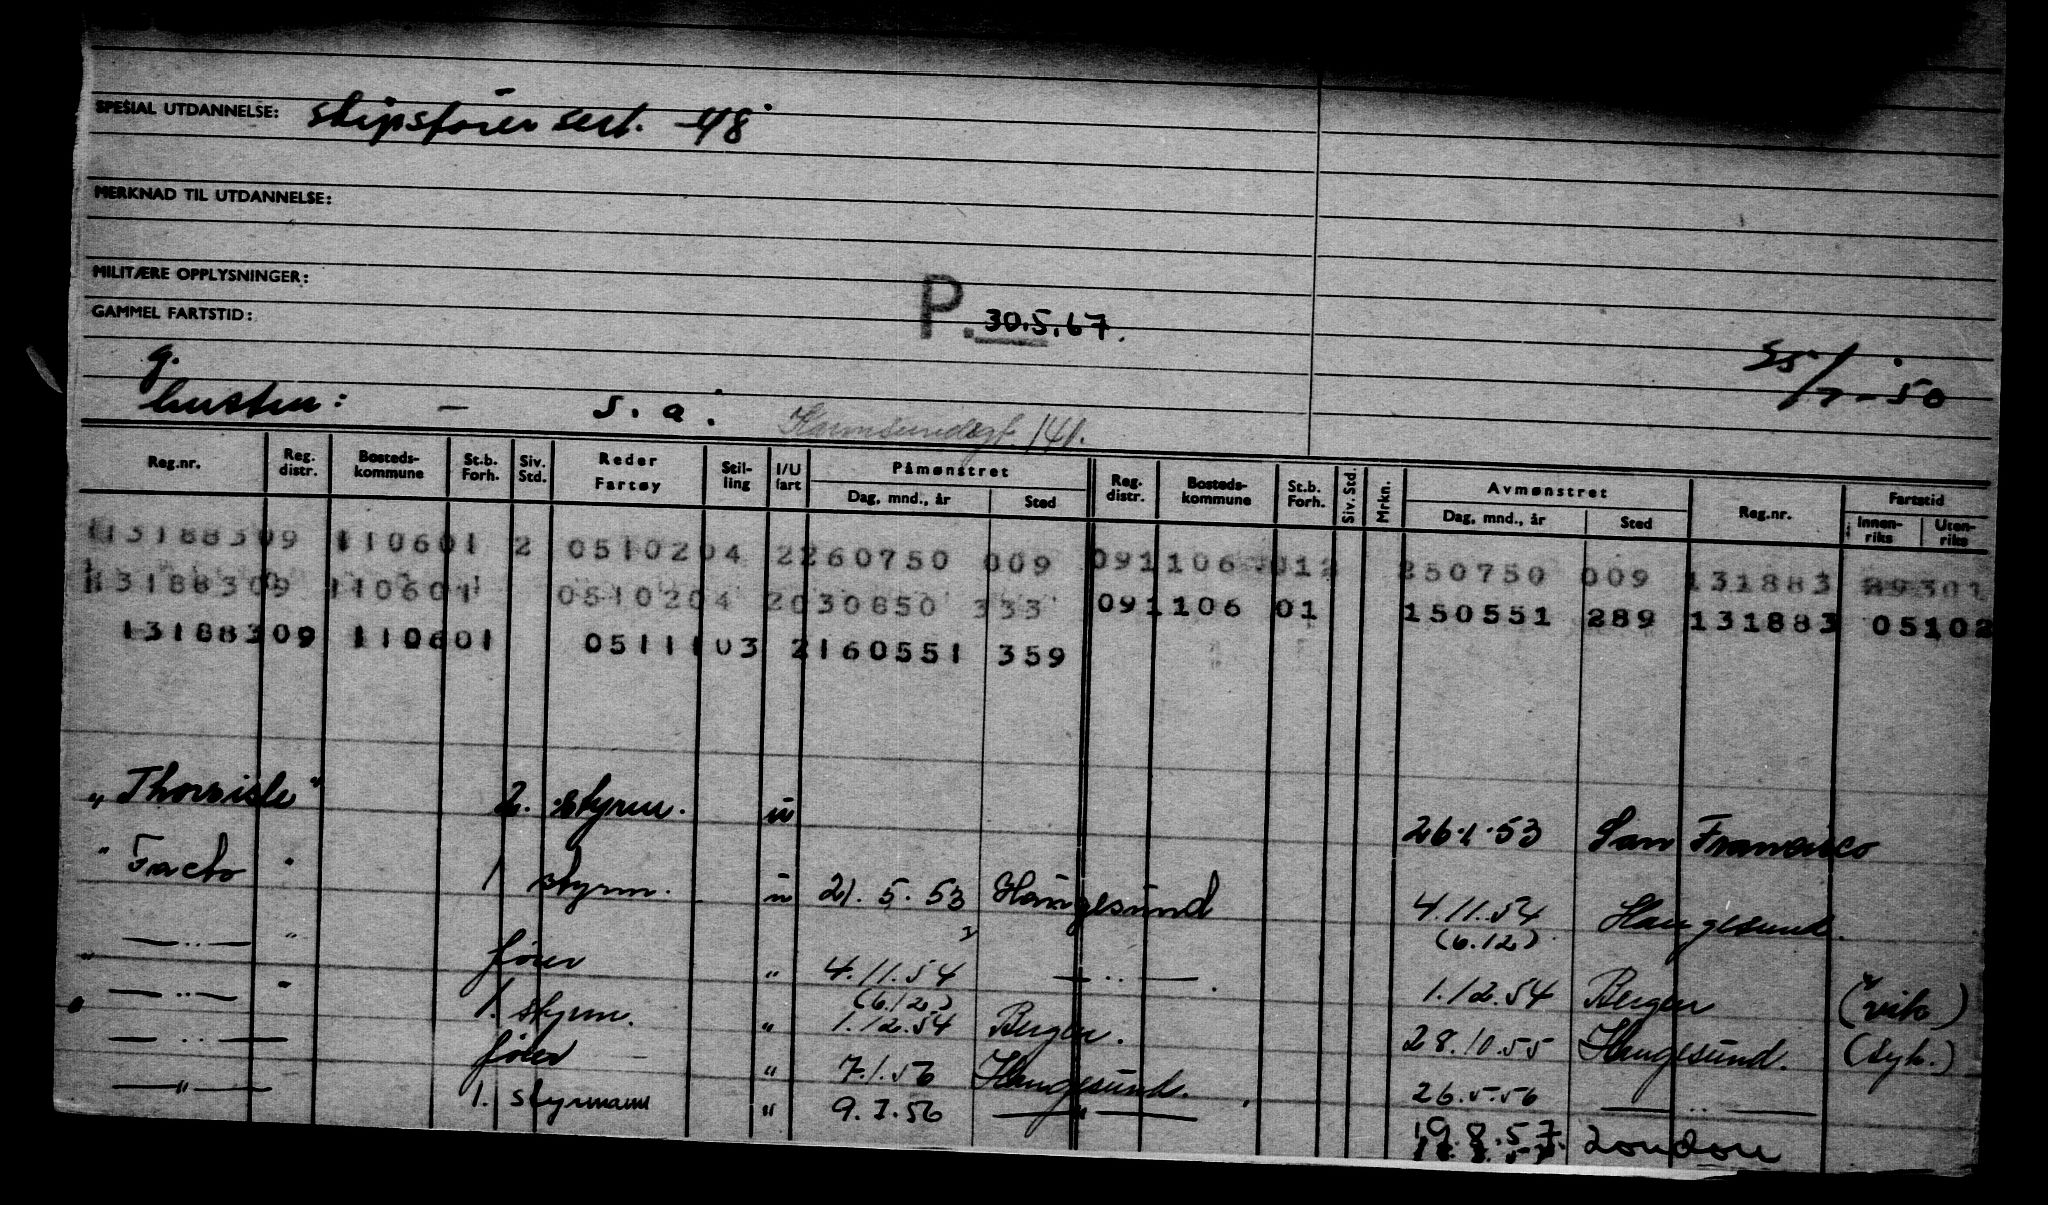 SPESIAL UTDANNELSE: skipsfører sert. -48
MERKNAD TIL UTDANNELSE:
MILITÆRE OPPLYSNINGER:
GAMMEL FARTSTID:
P. 30.5.67.
g. 25/7-50
hustru: - s. a. Karmsundsgt 141.
Reg.nr. Reg. distr. Bosteds- kommune St.b. Forh. Siv. Std. Reder Fartøy Stil- ling I/U fart Påmønstret Dag, mnd., år Sted Reg. distr. Bosteds- kommune St.b. Forh. Siv. Std. Mrkn. Avmønstret Dag, mnd., år Sted Reg.nr. Fartstid Innen- riks Uten- riks
13188309 110601 2 0510204 2260750 009 091106 012 250750 009 131883
13188309 110601 0510204 2030850 333 091106 01 150551 289 131883 05102
13188309 110601 0511103 2160551 359
"Thorsisle" 2. styrm. u 26.1.53 San Francisco
"Facto" 1 styrm. u 21.5.53 Haugesund 4.11.54 Haugesund.
(6.12)
" —..— " fører " 4.11.54 —..— 1.12.54 Bergen (vik)
(6.12.)
" —..— " 1. styrm. " 1.12.54 Bergen. 28.10.55 Haugesund. (syk.)
—..— fører " 7.1.56 Haugesund. 26.5.56 —..—
—"— 1. styrmann " 9.7.56 —"— 19.8.57. London